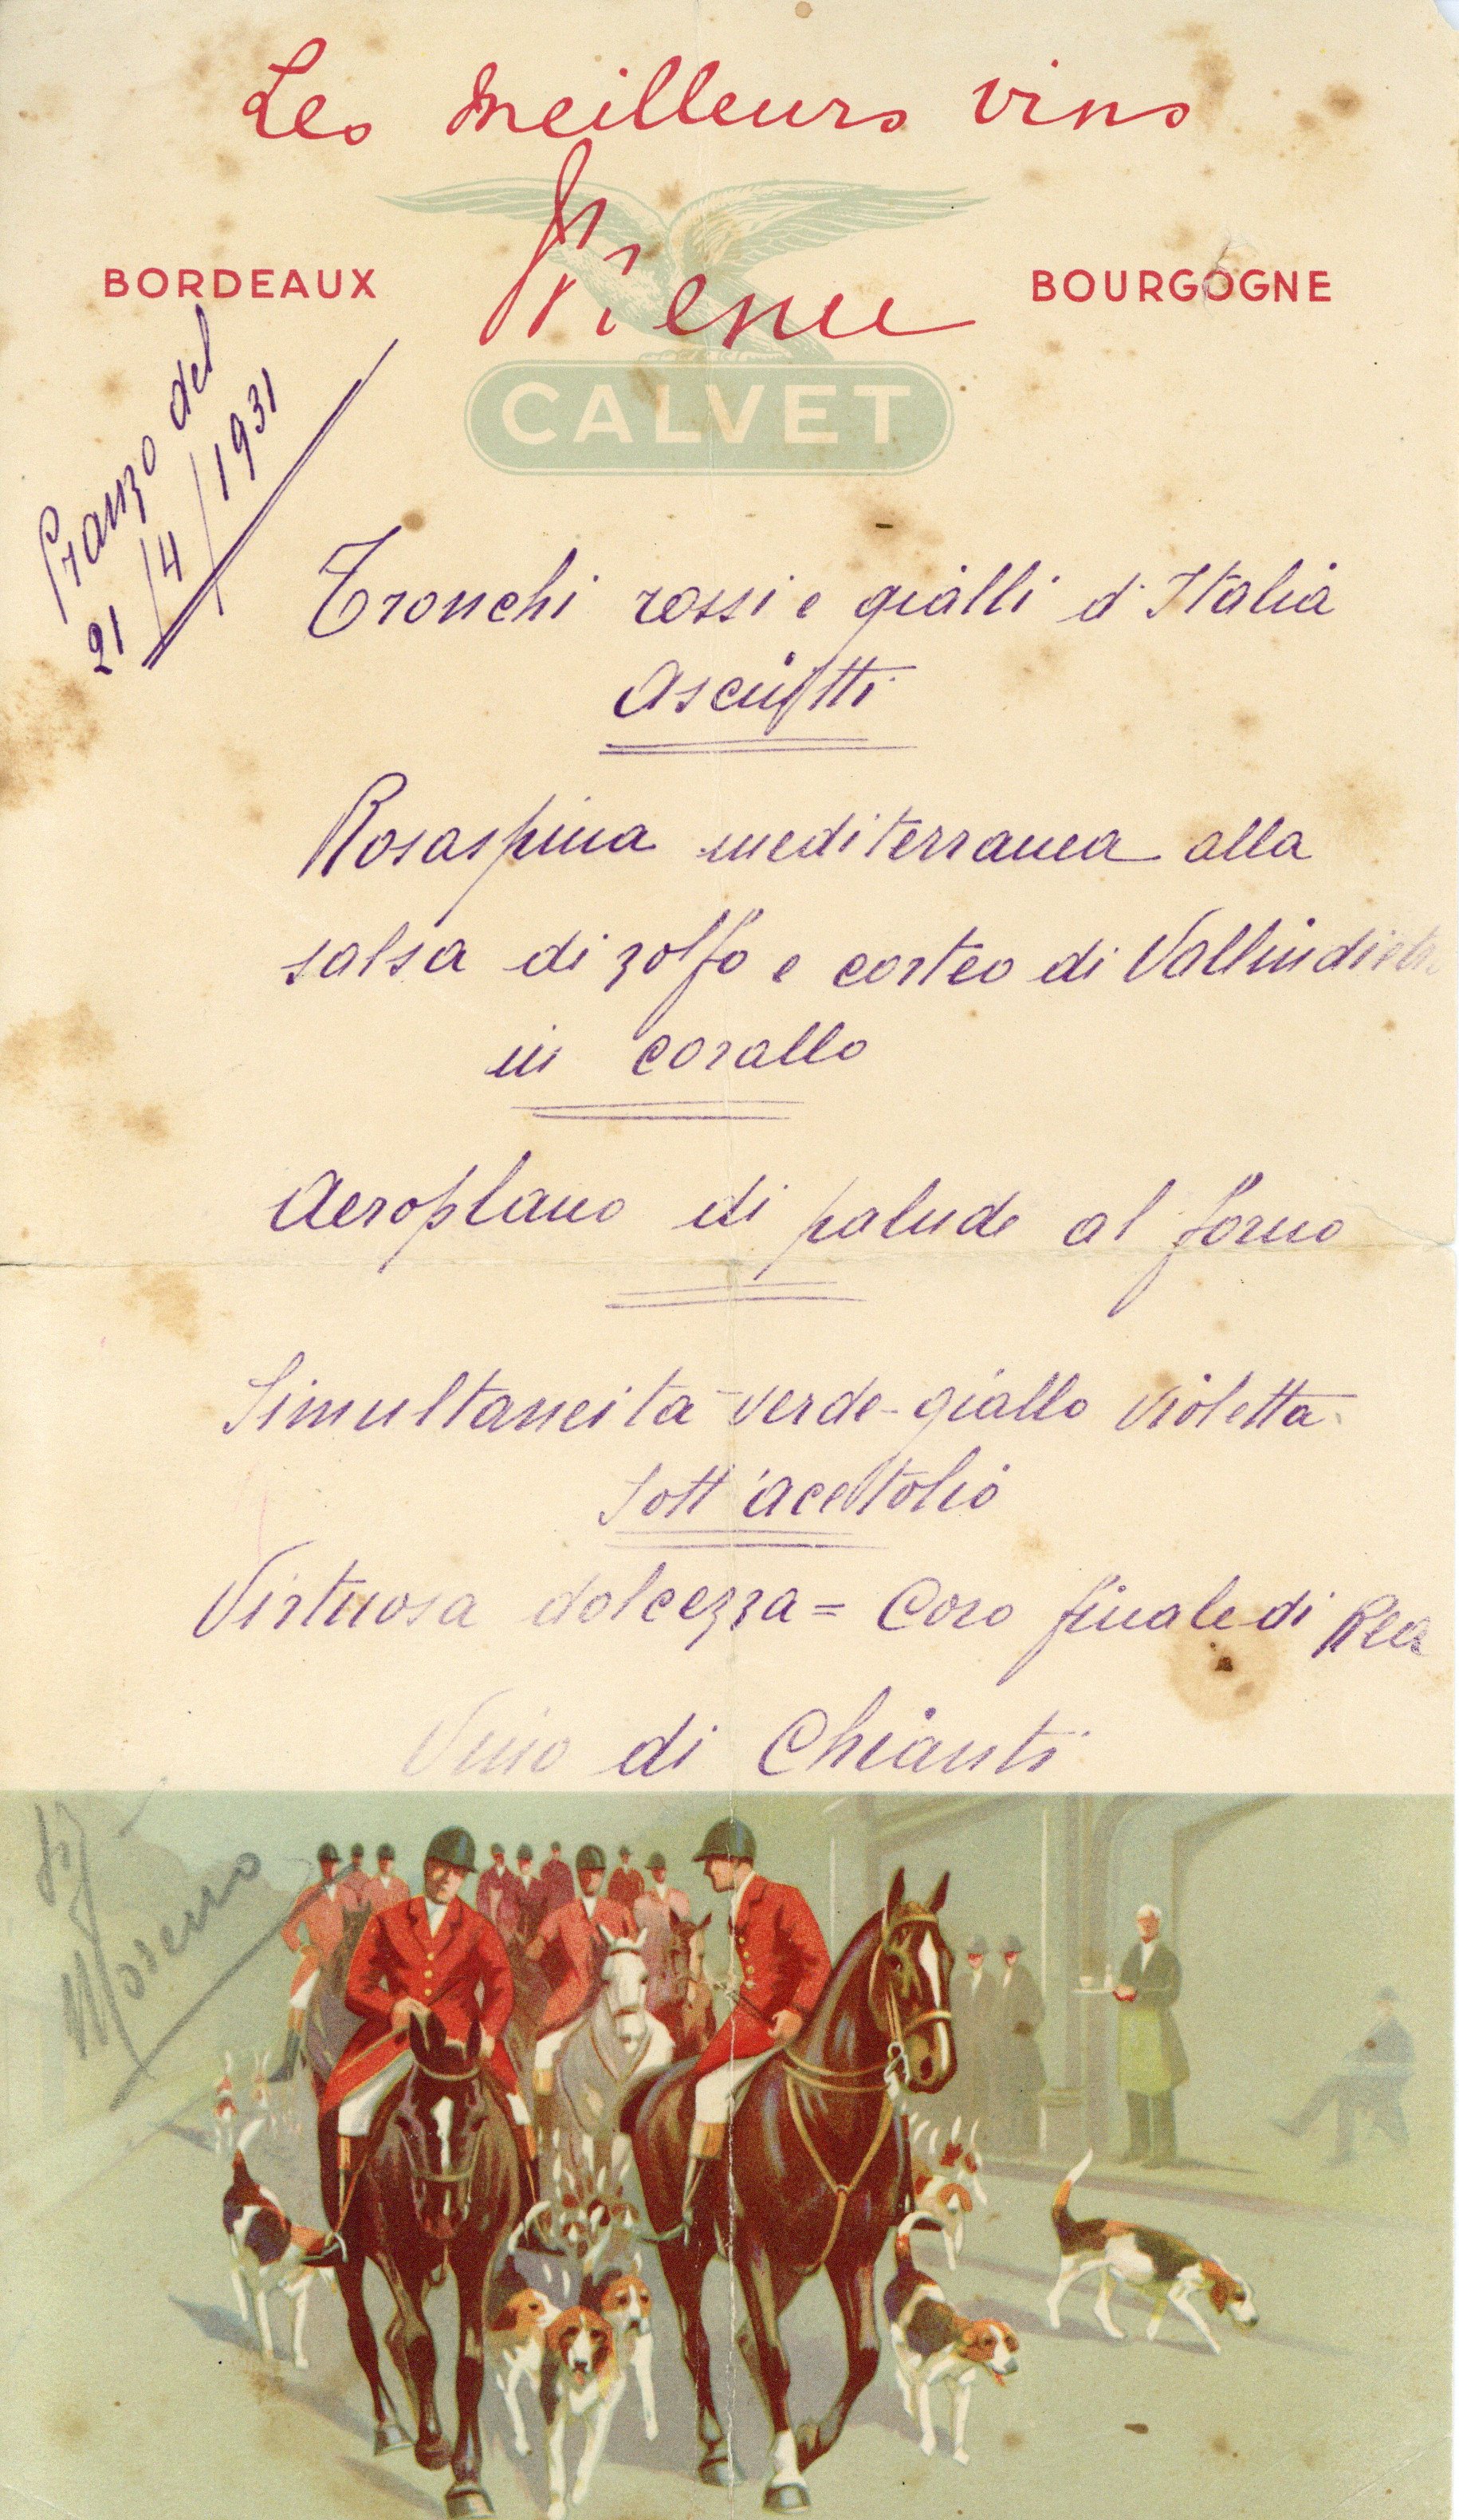 Les meilleurs vins
Menu
BORDEAUX
BOURGOGNE
CALVET
Pranzo del
21/4/1931
Tronchi rossi e gialli d'Italia
Asciutti
Rosaspina mediterranea alla
salsa di zolfo e corteo di
in corallo
Aeroplano di palude al forno
Simultaneita - verde-giallo violetta
Sott'acetolio
Virtuosa dolcezza = Coro finale di
Vino di Chianti
Moreno